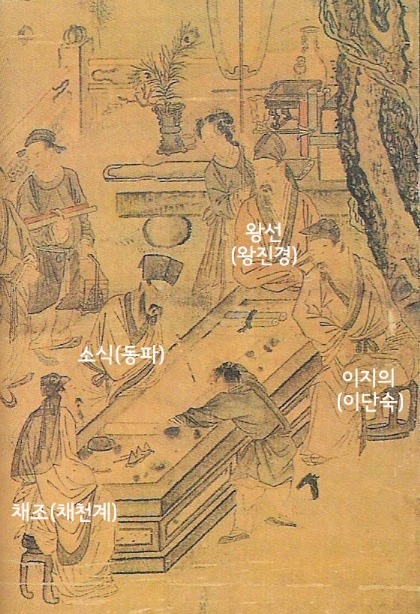 왕선
(왕진경)
소식(동파)
이지의
(이단숙)
채조(채천계)